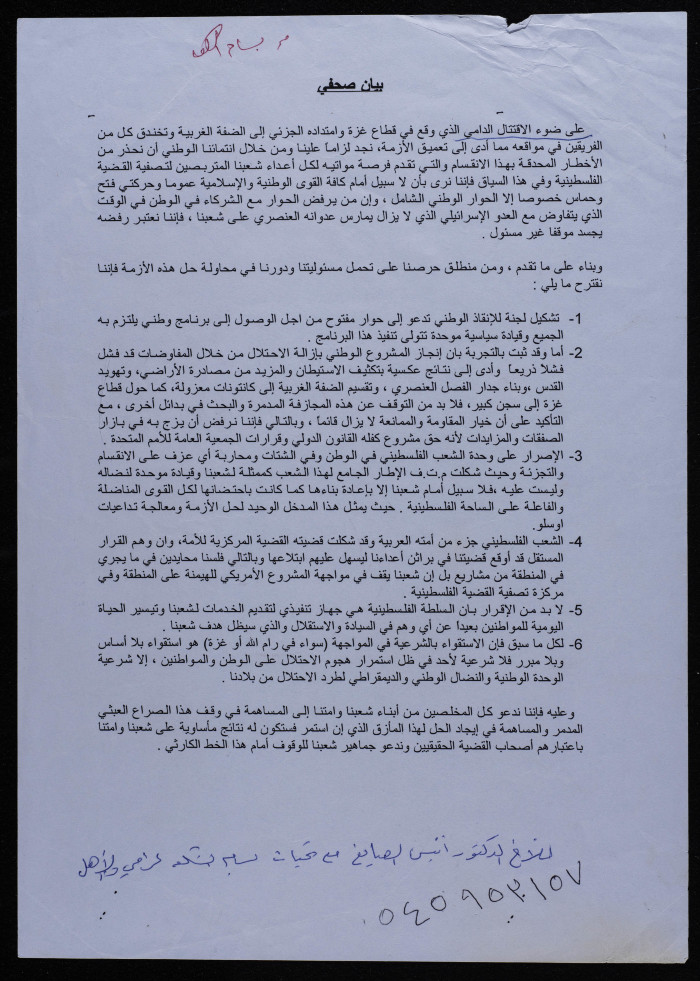 من بسام الشكعة
بيان صحفي
على ضوء الاقتتال الدامي الذي وقع في قطاع غزة وامتداده الجزئي إلى الضفة الغربية وتخندق كل من
الفريقين في مواقعه مما أدى إلى تعميق الأزمة، نجد لزاماً علينا ومن خلال انتمائنا الوطني أن نحذر من
الأخطار المحدقة بهذا الانقسام والتي تقدم فرصة مواتيه لكل أعداء شعبنا المتربصين لتصفية القضية
الفلسطينية وفي هذا السياق فإننا نرى بأن لا سبيل أمام كافة القوى الوطنية والإسلامية عموما وحركتي فتح
وحماس خصوصا إلا الحوار الوطني الشامل ، وإن من يرفض الحوار مع الشركاء في الوطن في الوقت
الذي يتفاوض مع العدو الإسرائيلي الذي لا يزال يمارس عدوانه العنصري على شعبنا ، فإننا نعتبر رفضه
يجسد موقفا غير مسئول .
وبناء على ما تقدم ، ومن منطلق حرصنا على تحمل مسئوليتنا ودورنا في محاولة حل هذه الأزمة فإننا
نقترح ما يلي :
1- تشكيل لجنة للإنقاذ الوطني تدعو إلى حوار مفتوح من اجل الوصول إلى برنامج وطني يلتزم به
الجميع وقيادة سياسية موحدة تتولى تنفيذ هذا البرنامج .
2- أما وقد ثبت بالتجربة بان إنجاز المشروع الوطني بإزالة الاحتلال من خلال المفاوضات قد فشل
فشلا ذريعاً وأدى إلى نتائج عكسية بتكثيف الاستيطان والمزيد من مصادرة الأراضي، وتهويد
القدس ،وبناء جدار الفصل العنصري ، وتقسيم الضفة الغربية إلى كانتونات معزولة، كما حول قطاع
غزة إلى سجن كبير، فلا بد من التوقف عن هذه المجازفة المدمرة والبحث في بدائل أخرى ، مع
التأكيد على أن خيار المقاومة والممانعة لا يزال قائماً ، وبالتالي فإننا نرفض أن يزج به في بازار
الصفقات والمزايدات لأنه حق مشروع كفله القانون الدولي وقرارات الجمعية العامة للأمم المتحدة .
3- الإصرار على وحدة الشعب الفلسطيني في الوطن وفي الشتات ومحاربة أي عزف على الانقسام
والتجزئة وحيث شكلت م.ت.ف الإطار الجامع لهذا الشعب كممثلة لشعبنا وقيادة موحدة لنضاله
وليست عليه ،فلا سبيل أمام شعبنا إلا بإعادة بناءها كما كانت باحتضانها لكل القوى المناضلة
والفاعلة على الساحة الفلسطينية . حيث يمثل هذا المدخل الوحيد لحل الأزمة ومعالجة تداعيات
اوسلو.
4- الشعب الفلسطيني جزء من أمته العربية وقد شكلت قضيته القضية المركزية للأمة، وان وهم القرار
المستقل قد أوقع قضيتنا في براثن أعداءنا ليسهل عليهم ابتلاعها وبالتالي فلسنا محايدين في ما يجري
في المنطقة من مشاريع بل إن شعبنا يقف في مواجهة المشروع الأمريكي للهيمنة على المنطقة وفي
مركزة تصفية القضية الفلسطينية .
5- لا بد من الإقرار بان السلطة الفلسطينية هي جهاز تنفيذي لتقديم الخدمات لشعبنا وتيسير الحياة
اليومية للمواطنين بعيداً عن أي وهم في السيادة والاستقلال والذي سيظل هدف شعبنا .
6- لكل ما سبق فإن الاستقواء بالشرعية في المواجهة (سواء في رام الله أو غزة) هو استقواء بلا أساس
وبلا مبرر فلا شرعية لأحد في ظل استمرار هجوم الاحتلال على الوطن والمواطنين ، إلا شرعية
الوحدة الوطنية والنضال الوطني والديمقراطي لطرد الاحتلال من بلادنا .
وعليه فإننا ندعو كل المخلصين من أبناء شعبنا وامتنا إلى المساهمة في وقف هذا الصراع العبثي
المدمر والمساهمة في إيجاد الحل لهذا المأزق الذي إن استمر فستكون له نتائج مأساوية على شعبنا وامتنا
باعتبارهم أصحاب القضية الحقيقيين وندعو جماهير شعبنا للوقوف أمام هذا الخط الكارثي .
الدكتور انيس الصايغ مع تحيات بسام الشكعة
٠٥٤٥٩٥٣١٥٧